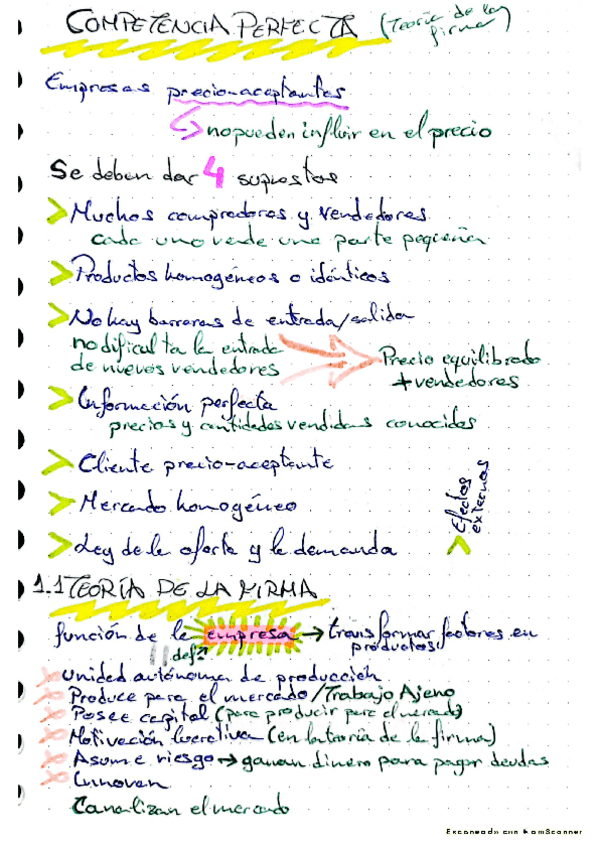 COMPETENCIA PERFECTA (Teoría de la firma)
Empresas precio-aceptantes
no pueden influir en el precio
Se deben dar 4 supuestos
> Muchos compradores y vendedores
cada uno vende una parte pequeña
> Productos homogéneos o idénticos
> No hay barreras de entrada/salida
no dificulta la entrada
de nuevos vendedores
Precio equilibrado
+ vendedores
> Información perfecta
precios y cantidades vendidas conocidas
> Cliente precio-aceptante
> Mercado homogéneo
> Ley de la oferta y la demanda
> Efectos externos
1.1 TEORÍA DE LA FIRMA
función de la empresa → transformar factores en
productos
def?
Unidad autónoma de producción
Produce para el mercado/Trabajo Ajeno
Posee capital (para producir para el mercado)
Motivación lucrativa (en la teoría de la firma)
Asume riesgo → ganan dinero para pagar deudas
Innovan
Canalizan el mercado
Escaneado con CamScanner